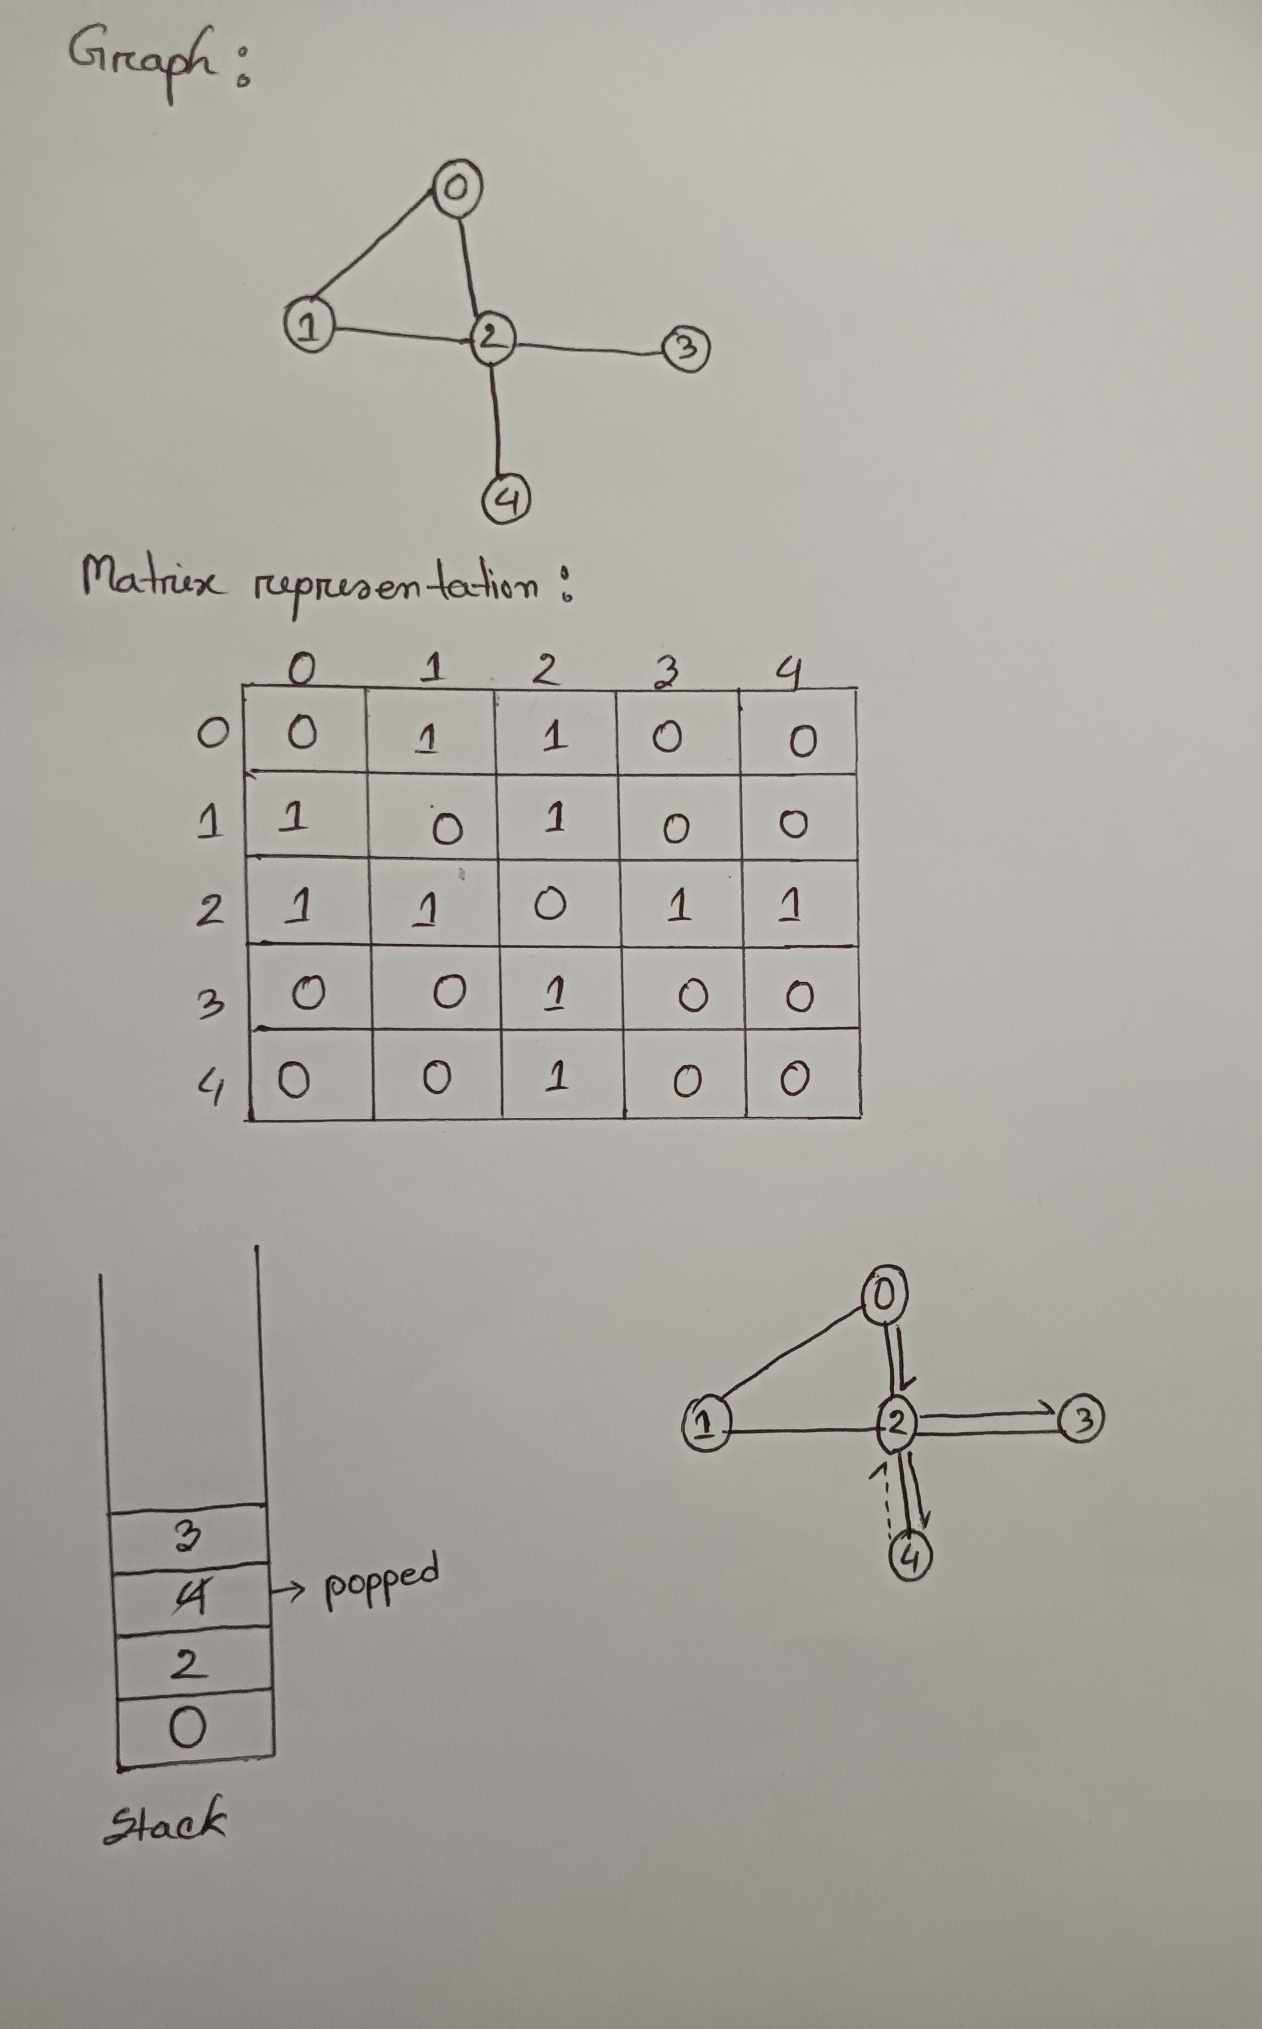 Graph:
0
1 2 3
4
Matrix representation:
0 1 2 3 4
0 0 1 1 0 0
1 1 0 1 0 0
2 1 1 0 1 1
3 0 0 1 0 0
4 0 0 1 0 0
0
1 2 3
4
3
4 → popped
2
0
Stack